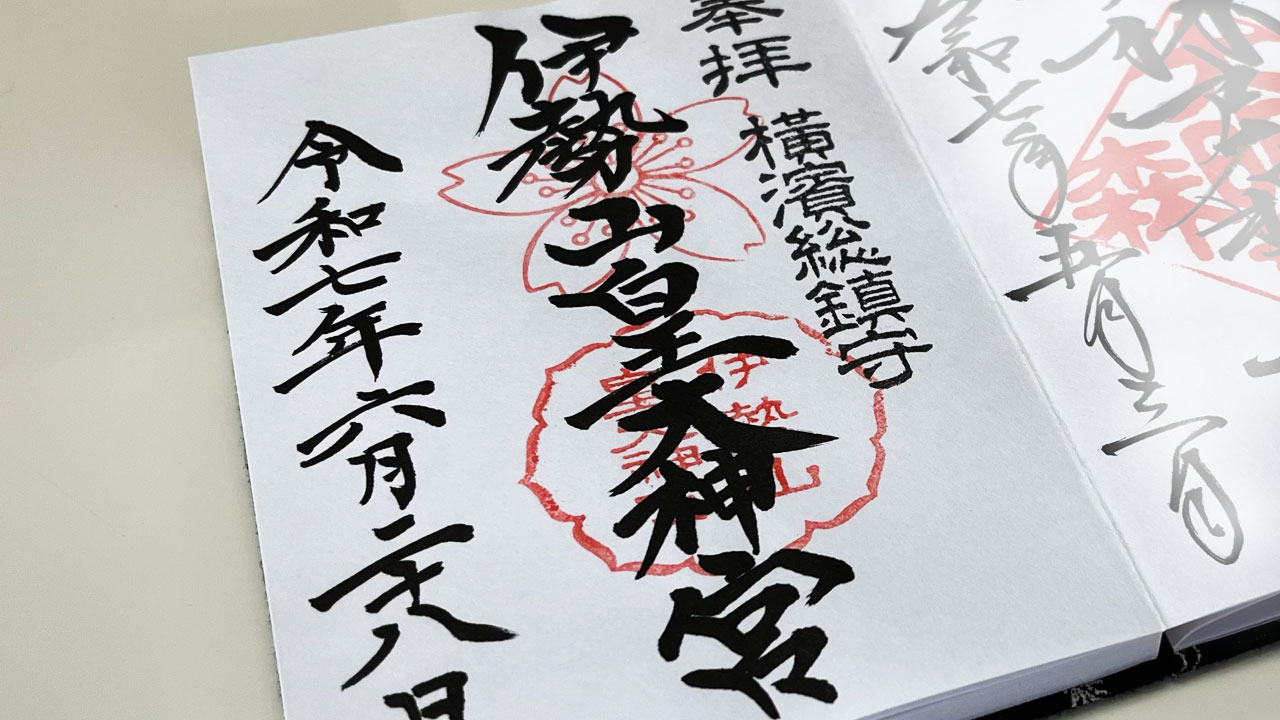 奉拝
横濱総鎮守
伊勢山皇大神宮
令和七年六月二十八日
伊勢山
皇大神宮
令和七年五月三日
森